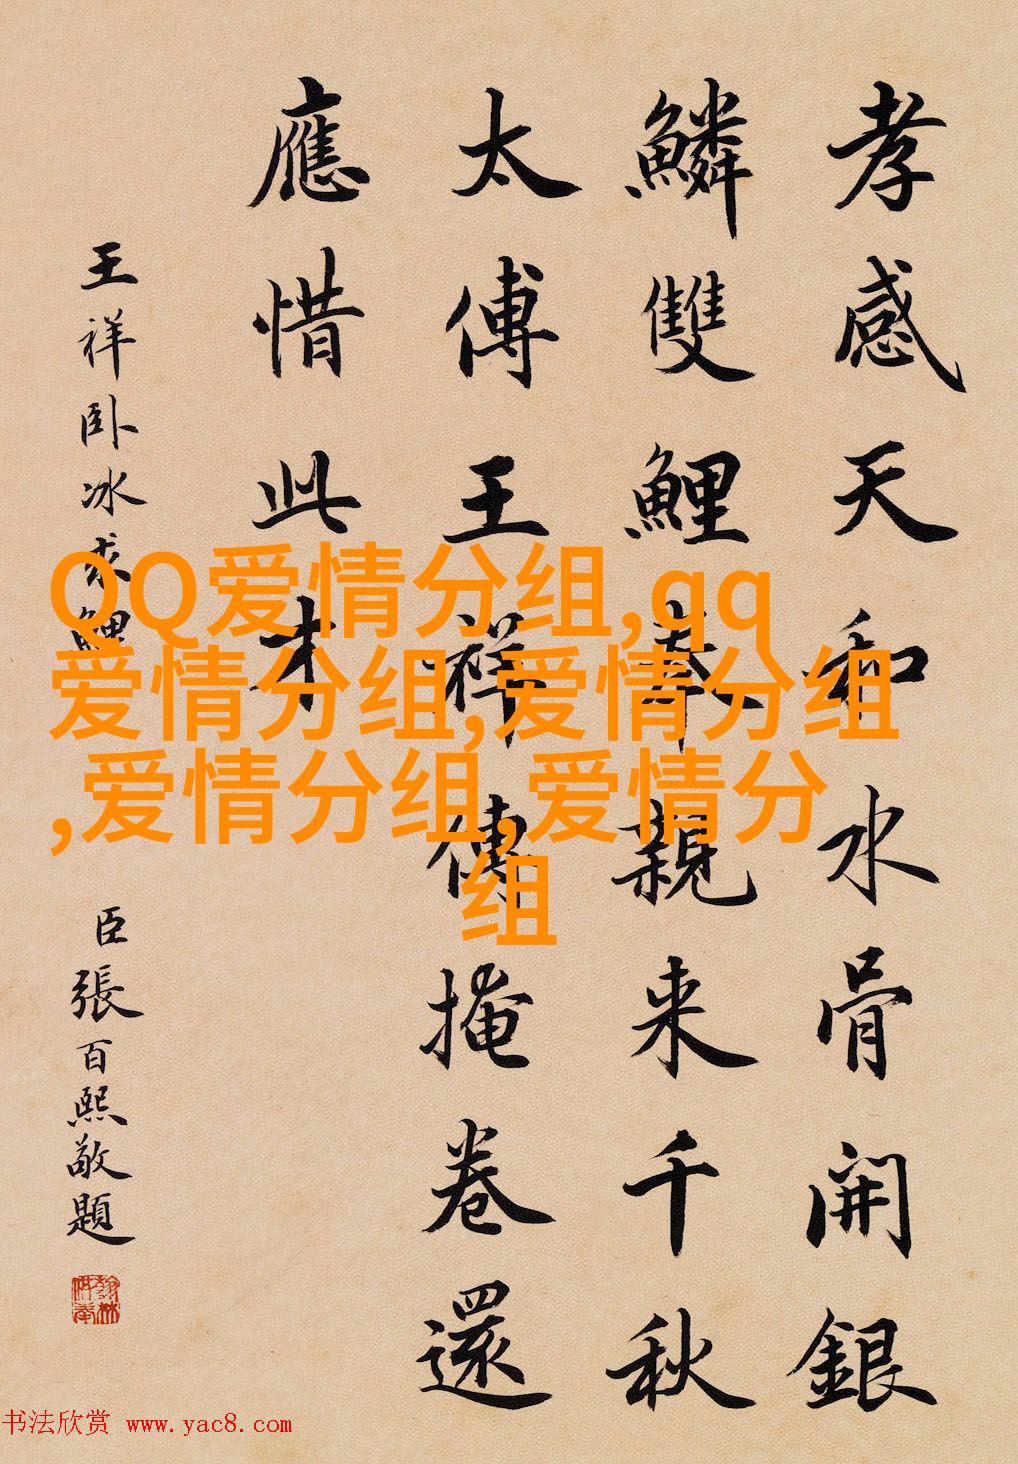 孝感天和水骨開銀
鱗雙鯉奉親来千秋
太傅王祥傳掩卷還
應惜此才
王祥卧冰求鯉
臣張百熙敬題
QQ爱情分组,qq
爱情分组,爱情分组
,爱情分组,爱情分
组
书法欣赏 www.yac8.com